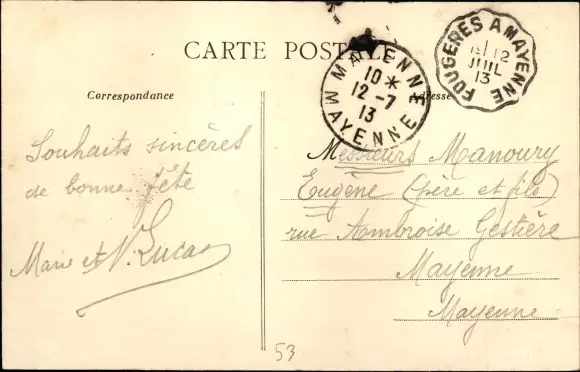 CARTE POSTALE
MAYENNE
10 *
12 -7
13
MAYENNE
FOUGERES A MAYENNE
12
JUIL
13
Correspondance
Adresse
Souhaits sincères
de bonne fête
Marie et N. Lucas
Messieurs Manoury
Eugène (père et fils)
rue Ambroise Gestière
Mayenne
Mayenne
53